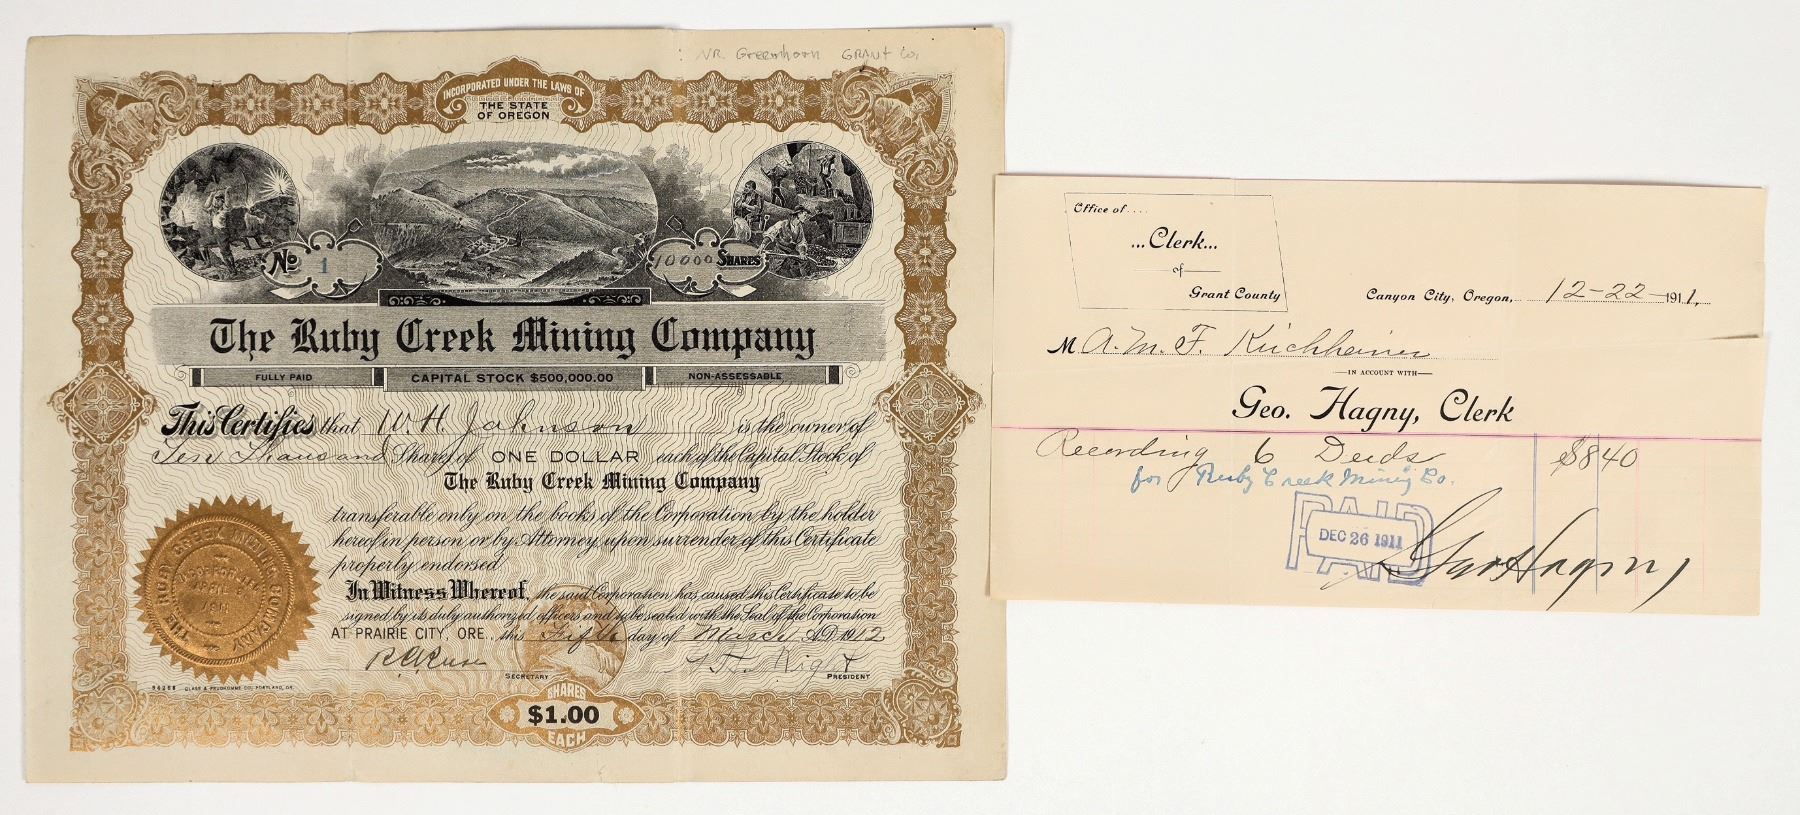 : NR Greenhorn GRANT Co.
INCORPORATED UNDER THE LAWS OF
THE STATE
OF OREGON
No 1
10000 SHARES
The Ruby Creek Mining Company
FULLY PAID CAPITAL STOCK $500,000.00 NON-ASSESSABLE
This Certifies that W. H. Johnson is the owner of
Ten Thousand Shares of ONE DOLLAR each of the Capital Stock of
The Ruby Creek Mining Company
transferable only on the books of the Corporation by the holder
hereof in person or by Attorney upon surrender of this Certificate
properly endorsed.
In Witness Whereof, the said Corporation has caused this Certificate to be
signed by its duly authorized officers and to be sealed with the Seal of the Corporation
AT PRAIRIE CITY, ORE., this Fifth day of March A.D. 1912
SECRETARY
Wright
PRESIDENT
THE RUBY CREEK MINING COMPANY
1911
GLASS & PRUDHOMME CO., PORTLAND, OR.
SHARES
$1.00
EACH
Office of....
...Clerk...
of
Grant County
Canyon City, Oregon, 12-22-1911.
M A. M. F. Kirchheiner
IN ACCOUNT WITH
Geo. Hagny, Clerk
Recording 6 Deeds $8 40
for Ruby Creek Mining Co.
PAID
DEC 26 1911
Geo Hagny